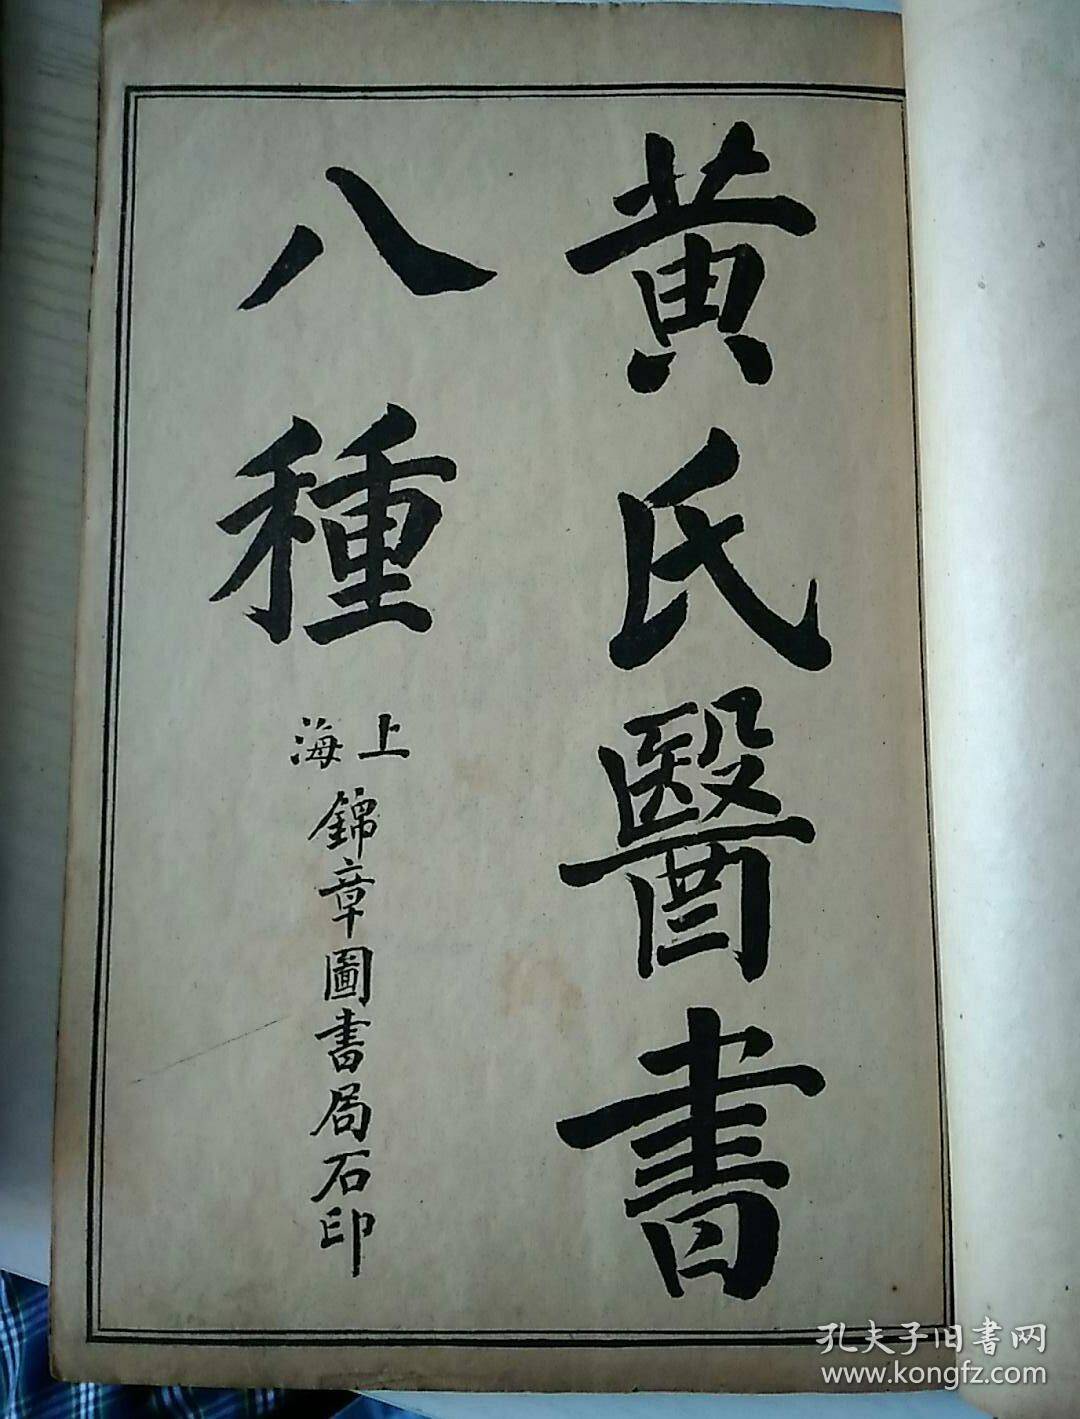 黄氏醫書
八種
上海
錦章圖書局石印
孔夫子旧書网
www.kongfz.com